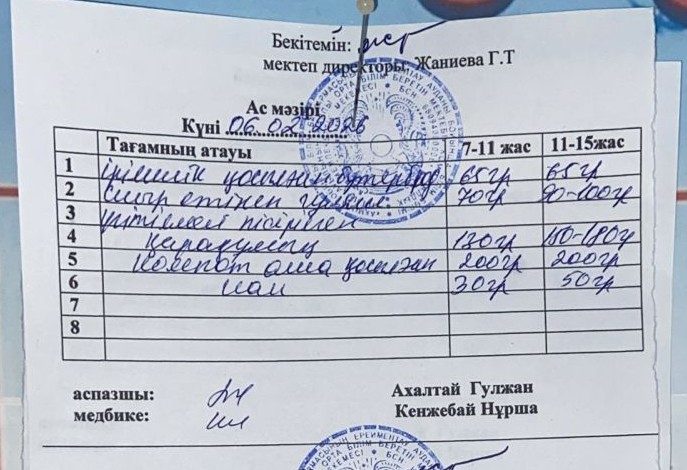 Бекітемін:
мектеп директоры, Жаниева Г.Т
Ас мәзірі
Күні 06.02.2026
Тағамның атауы 7-11 жас 11-15жас
1 ірімшік қосылған бутерброд 65гр 65гр
2 Сиыр етінен гуляш 70гр 90-100гр
3 үгітілмей пісірілген
4 қарақұмық 130гр 150-180гр
5 Компот алма қосылған 200гр 200гр
6 нан 30гр 50гр
7
8
аспазшы: Ахалтай Гулжан
медбике: Кенжебай Нұрша